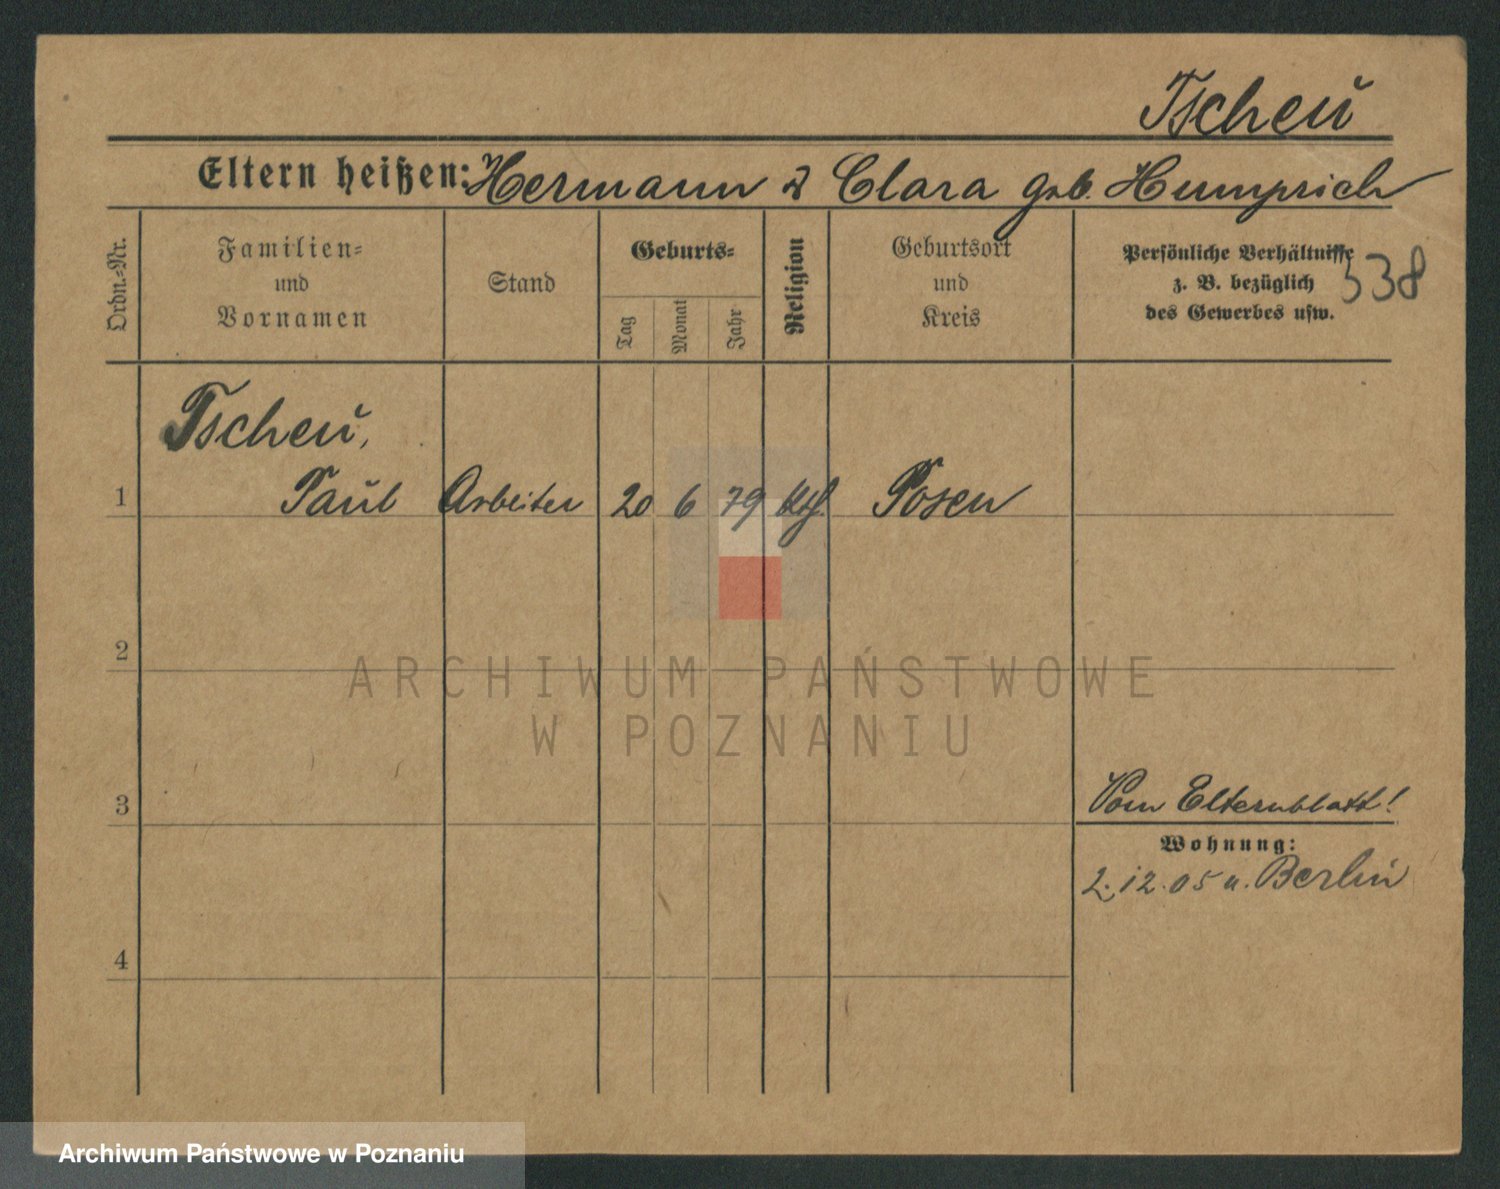 Tscheu
Eltern heißen: Hermann & Clara geb. Humprich
Ordn.=Nr.
Familien=
und
Vornamen
Stand
Geburts=
Tag
Monat
Jahr
Religion
Geburtsort
und
Kreis
Persönliche Verhältnisse
z. B. bezüglich
des Gewerbes usw.
338
Tscheu,
1 Paul Arbeiter 20 6 79 Kth. Posen
2
ARCHIWUM PAŃSTWOWE
W POZNANIU
3
Vom Elternblatt!
Wohnung:
2.12.05 n. Berlin
4
Archiwum Państwowe w Poznaniu